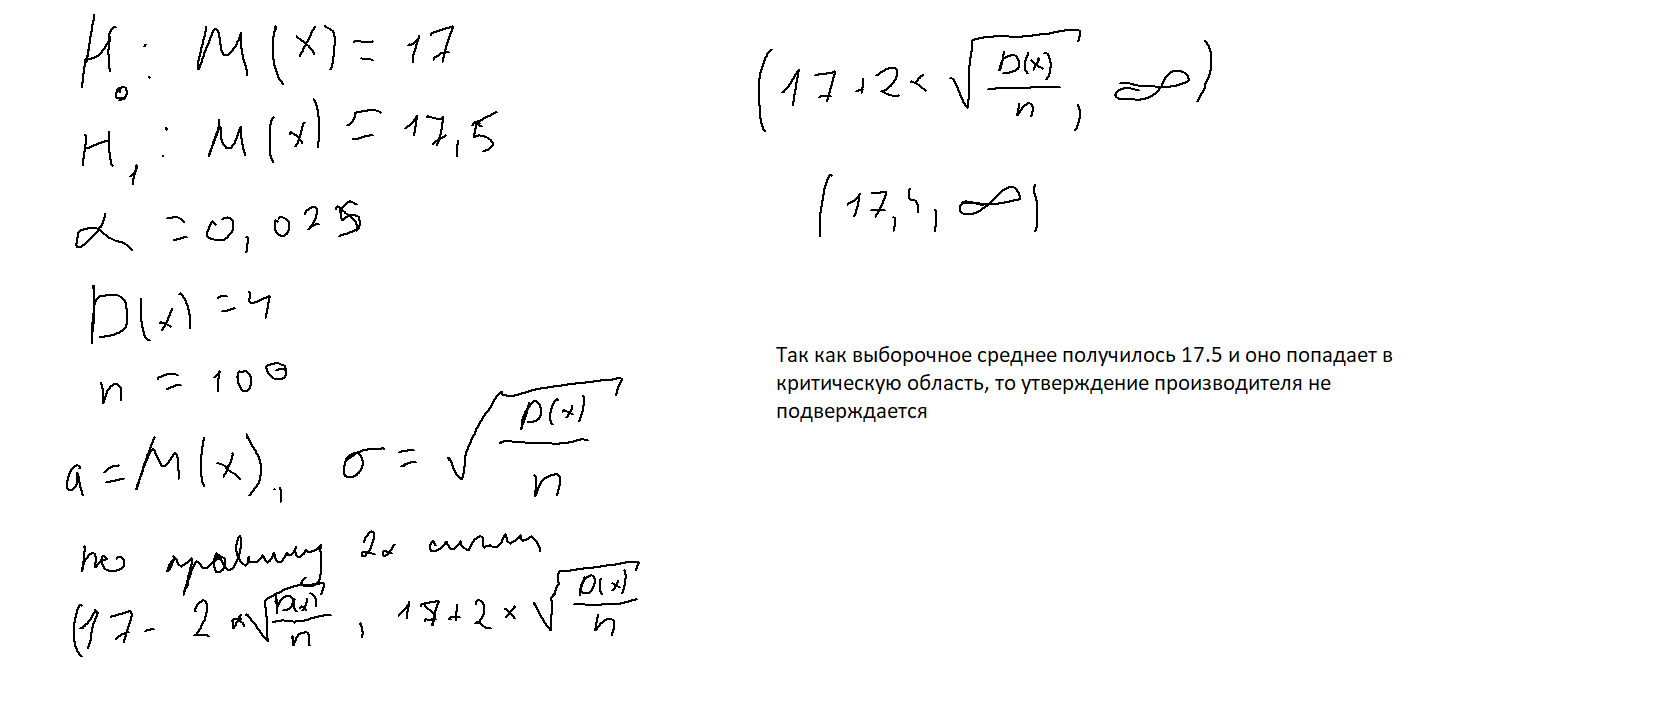 H₀: M(x) = 17
H₁: M(x) = 17,5
α = 0,025
D(x) = 4
n = 100
a = M(x), σ = √(D(x)/n)
по правилу 2х сигм
(17 - 2 × √(D(x)/n), 17 + 2 × √(D(x)/n)
(17 + 2 × √(D(x)/n), ∞)
(17,4, ∞)
Так как выборочное среднее получилось 17.5 и оно попадает в
критическую область, то утверждение производителя не
подверждается